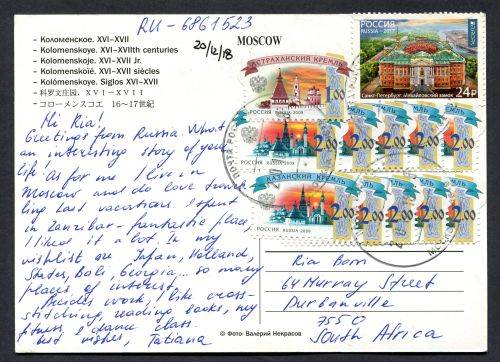 RU-6861523
20/4/18
- Коломенское. XVI-XVII
- Kolomenskoye. XVI-XVIIth centuries
- Kolomenskoje. XVI-XVII Jr.
- Kolomenskoïé. XVI-XVII siècles
- Kolómenskoye. Siglos XVI-XVII
- 科罗文庄园, XVI-XVII
- コローメンスコエ 16~17世紀
MOSCOW
РОССИЯ
RUSSIA • 2017
Санкт-Петербург. Михайловский замок
24Р
АСТРАХАНСКИЙ КРЕМЛЬ
1.00
РОССИЯ RUSSIA•2009
2.00 2.00 2.00 2.00 2.00
РОССИЯ RUSSIA•2009
КАЗАНСКИЙ КРЕМЛЬ
2.00 2.00 2.00 2.00 2.00
РОССИЯ RUSSIA•2009
Hi Ria!
Greetings from Russia. What
an interesting story of your
life as for me I live in
Moscow and do love travel-
ling. Last vacations I spent
in Zanzibar - fantastic place,
I liked it a lot. In my
wishlist are Japan, Holland,
States, Bali, Georgia... so many
places of interest.
Besides work, I like cross-
stitching, reading books, my
fitness & dance class.
Best wishes, Tatiana
Ria Born
64 Murray Street
Durbanville
7550
South Africa
© Фото- Валерий Некрасов